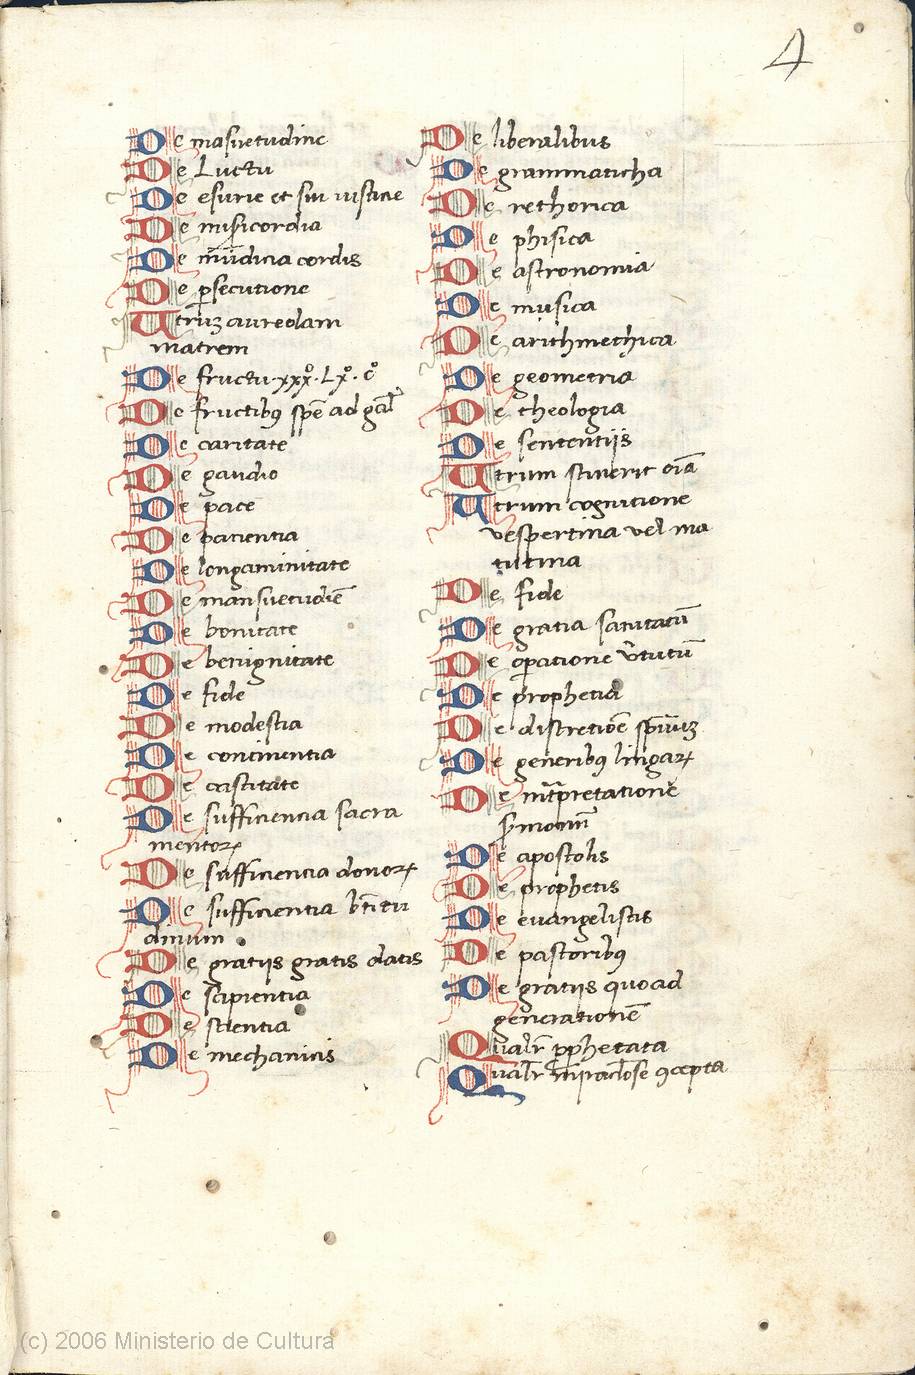 4
De masuetudine
De Luctu
De esurie et siti iusticie
De misericordia
De mūdicia cordis
De ꝑsecutione
Utruꝫ aureolam
matrem
De fructu·xxxº·Lxº·cº
De fructibꝰ spē ad gāl
De caritate
De gaudio
De pace
De pacientia
De longaminitate
De mansuetudiē
De bonitate
De benignitate
De fide
De modestia
De continentia
De castitate
De sufficiencia sacra
mentoꝝ
De sufficiencia donoꝝ
De sufficientia btītu
dinum
De gratijs gratis datis
De sapientia
De scientia
De mechanicis
De liberalibus
De grammaticha
De rethorica
De phisica
De astronomia
De musica
De arithmethica
De geometria
De theologia
De sententijs
Utrum sciverit oīa
Utrum cognitione
vespertina vel ma
tutina
De fide
De gratia sanitatū
De oꝑatione v̄tutū
De prophetia
De discretiōe spīuuꝫ
De generibꝰ lingaꝝ
De int̄pretatione
s̄monū
De apostolis
De prophetis
De euangelistis
De pastoribꝰ
De gratijs quo ad
generationē
Qualr̄ ꝓphetata
Qualr̄ miraclose ꝯcepta
(c) 2006 Ministerio de Cultura